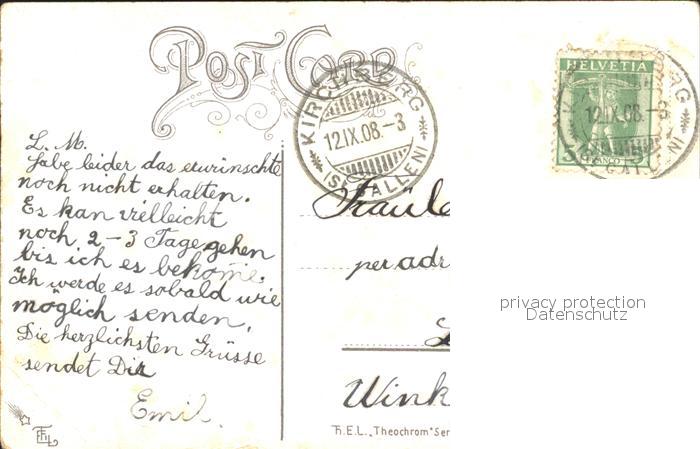 Post Card
KIRCHBERG
12.IX.08.-3
(ST. GALLEN)
HELVETIA
12.IX.08.-3
FRANCO
L. M.
Habe leider das erwünschte
noch nicht erhalten.
Es kan vielleicht
noch 2-3 Tage gehen
bis ich es bekome.
Ich werde es sobald wie
möglich senden.
Die herzlichsten Grüsse
sendet Dir
Emil.
Fräule
per adr
Wink
Th.E.L. „Theochrom" Ser
privacy protection
Datenschutz